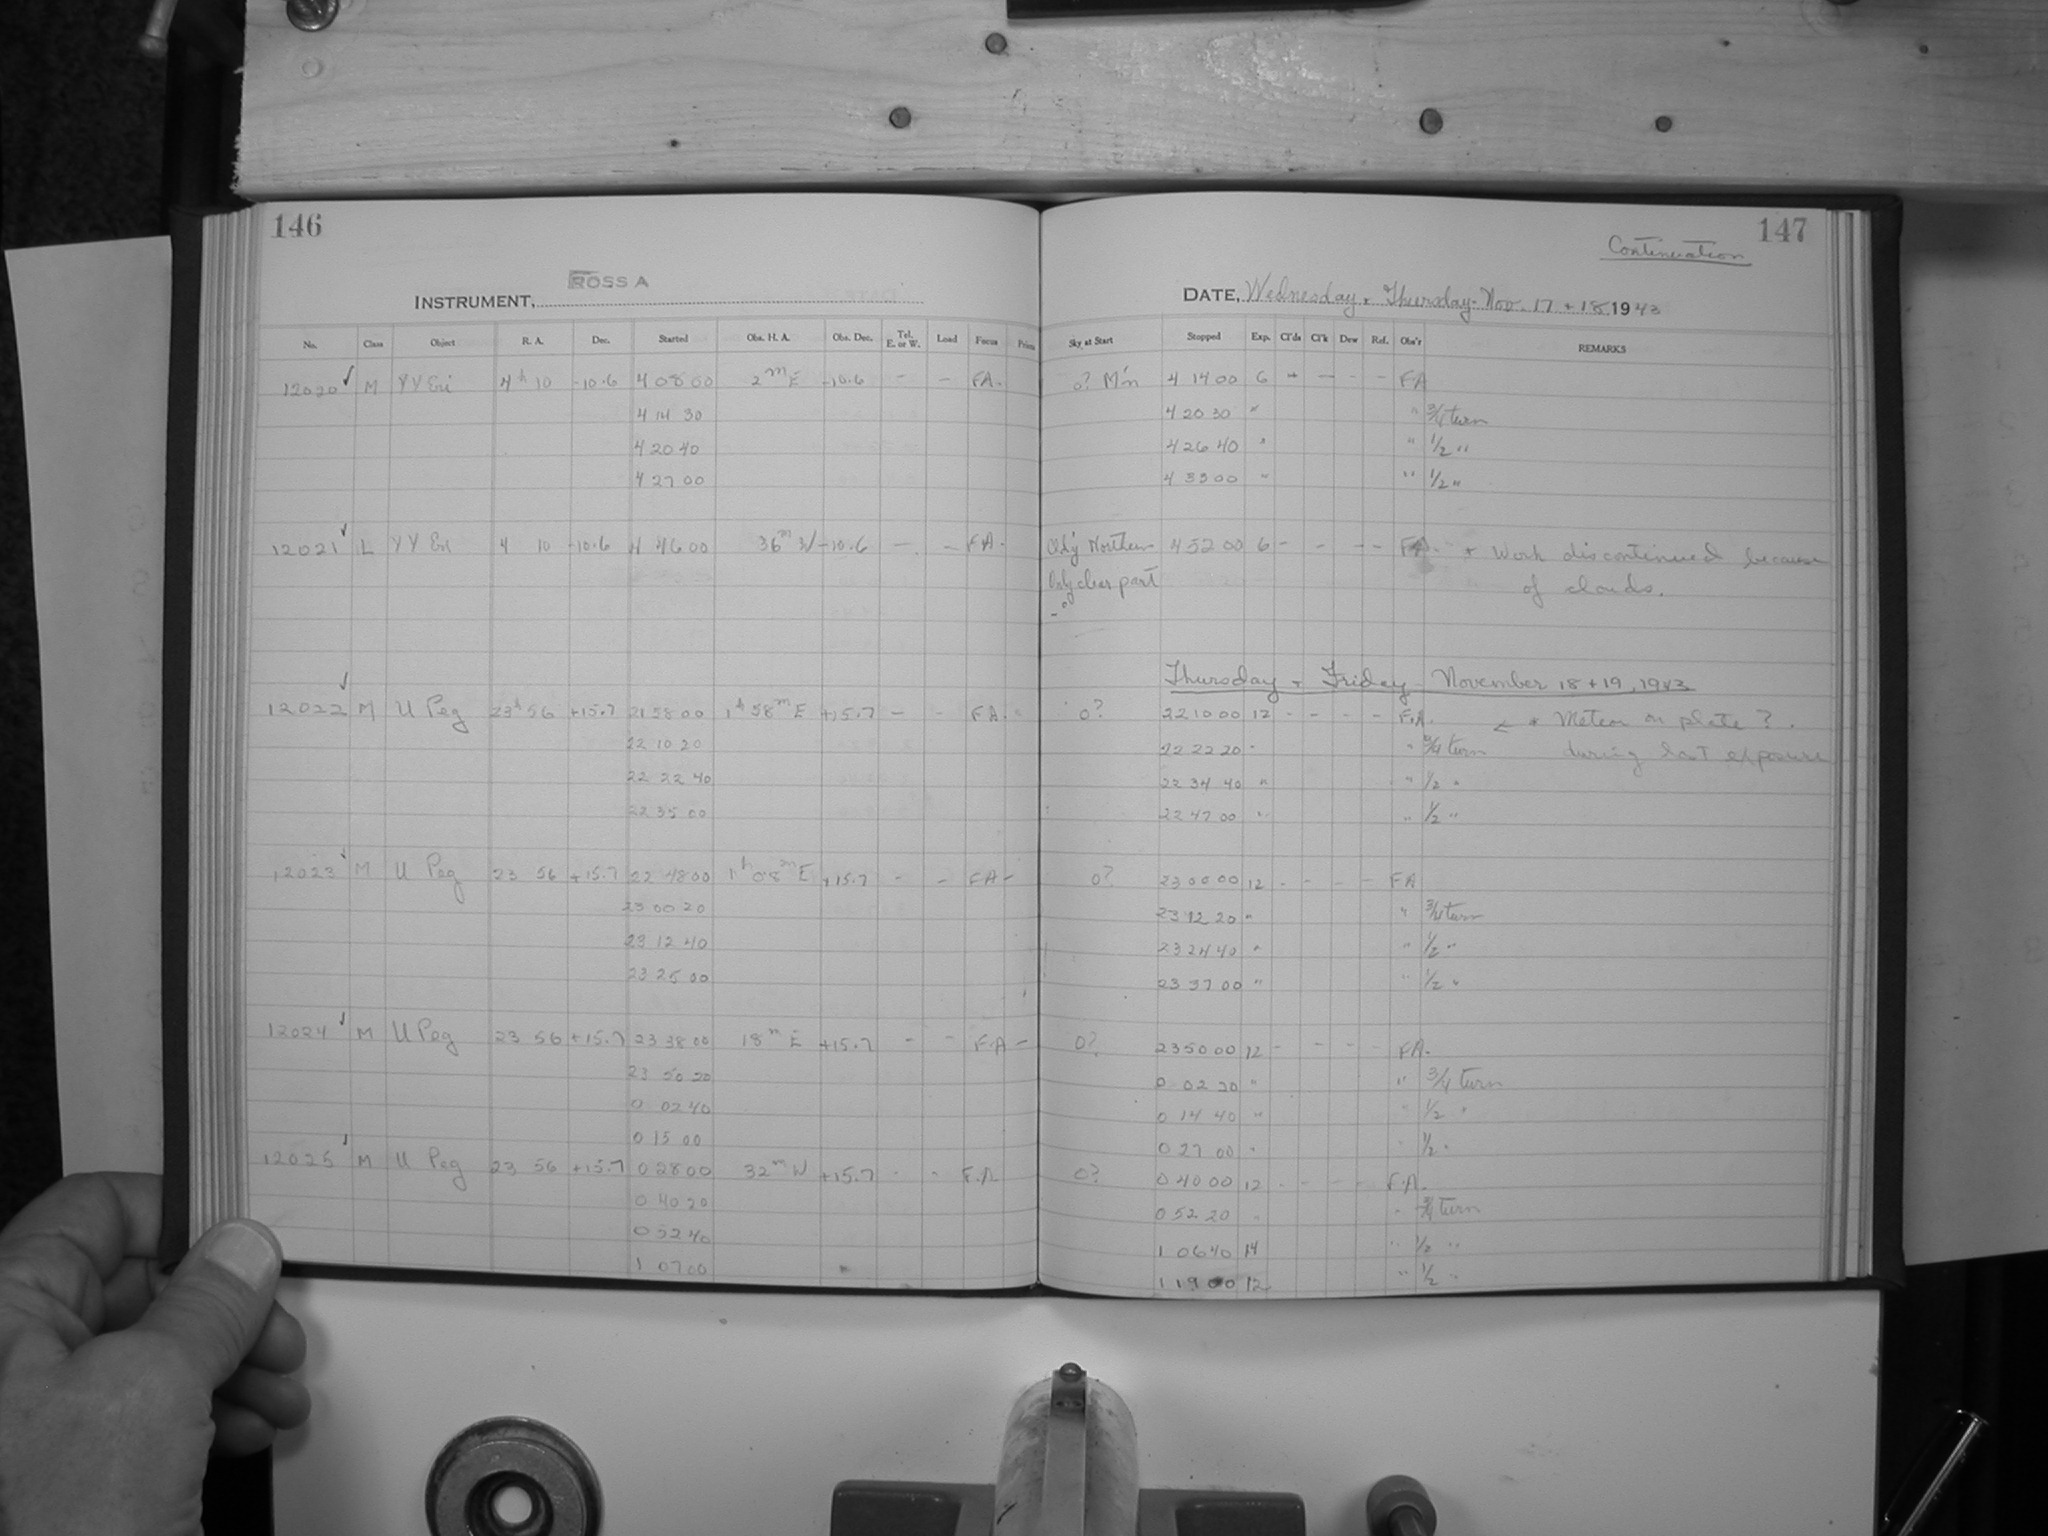 146
147
Continuation
ROSS A
INSTRUMENT,
DATE, Wednesday + Thursday - Nov. 17 + 18 1943
No. Class Object R. A. Dec. Started Obs. H. A. Obs. Dec. Tel. E. or W. Load Focus Prism Sky at Start Stopped Exp. Cl'ds Cl'k Dew Ref. Obs'r REMARKS
12020 ✓ M YY Eri 4h 10 -10.6 4 08 00 2m E -10.6 - - FA- 0? M'n 4 14 00 6 - - - - FA
4 14 30 4 20 30 " " 3/4 turn
4 20 40 4 26 40 " " 1/2 "
4 27 00 4 33 00 " " 1/2 "
12021 ✓ L YY Eri 4 10 -10.6 4 46 00 36m W -10.6 - - FA- Cld'y Northern 4 52 00 6 - - - - FA- + Work discontinued because
Only clear part of clouds.
Thursday + Friday - November 18 + 19, 1943
12022 ✓ M U Peg 23h 56 +15.7 21 58 00 1h 58m E +15.7 - - FA- 0? 22 10 00 12 - - - - F.A. * Meteor on plate ?
22 10 20 22 22 20 " " 3/4 turn during last exposure
22 22 40 22 34 40 " " 1/2 "
22 35 00 22 47 00 " " 1/2 "
12023 ✓ M U Peg 23 56 +15.7 22 48 00 1h 08m E +15.7 - - FA- 0? 23 00 00 12 - - - - FA
23 00 20 23 12 20 " " 3/4 turn
23 12 40 23 24 40 " " 1/2 "
23 25 00 23 37 00 " " 1/2 "
12024 ✓ M U Peg 23 56 +15.7 23 38 00 18m E +15.7 - - F.A- 0? 23 50 00 12 - - - - FA.
23 50 20 0 02 20 " " 3/4 turn
0 02 40 0 14 40 " " 1/2 "
0 15 00 0 27 00 " " 1/2 "
12025 ✓ M U Peg 23 56 +15.7 0 28 00 32m W +15.7 - - F.A 0? 0 40 00 12 - - - - F.A.
0 40 20 0 52 20 " " 3/4 turn
0 52 40 1 06 40 14 " 1/2 "
1 07 00 1 19 00 12 " 1/2 "